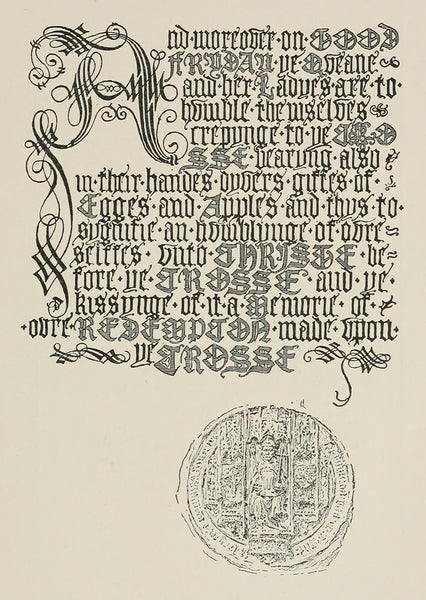 And·moreover·on·GOOD
FRYDAY·ye·Queane
and·her·Ladyes·are·to·
humble·themselves
crepynge·to·ye·CRO
SSE·bearing·also
in·their·handes·dyvers·giftes·of·
Egges·and·Apples·and·thus·to·
sygnifie·an·humblynge·of·ovre
selffes·vnto·CHRISTE·be
fore·ye·CROSSE·and·ye·
kissynge·of·it·a·Memorie·of·
·ovre·REDEMPTON·made·vpon·
ye CROSSE